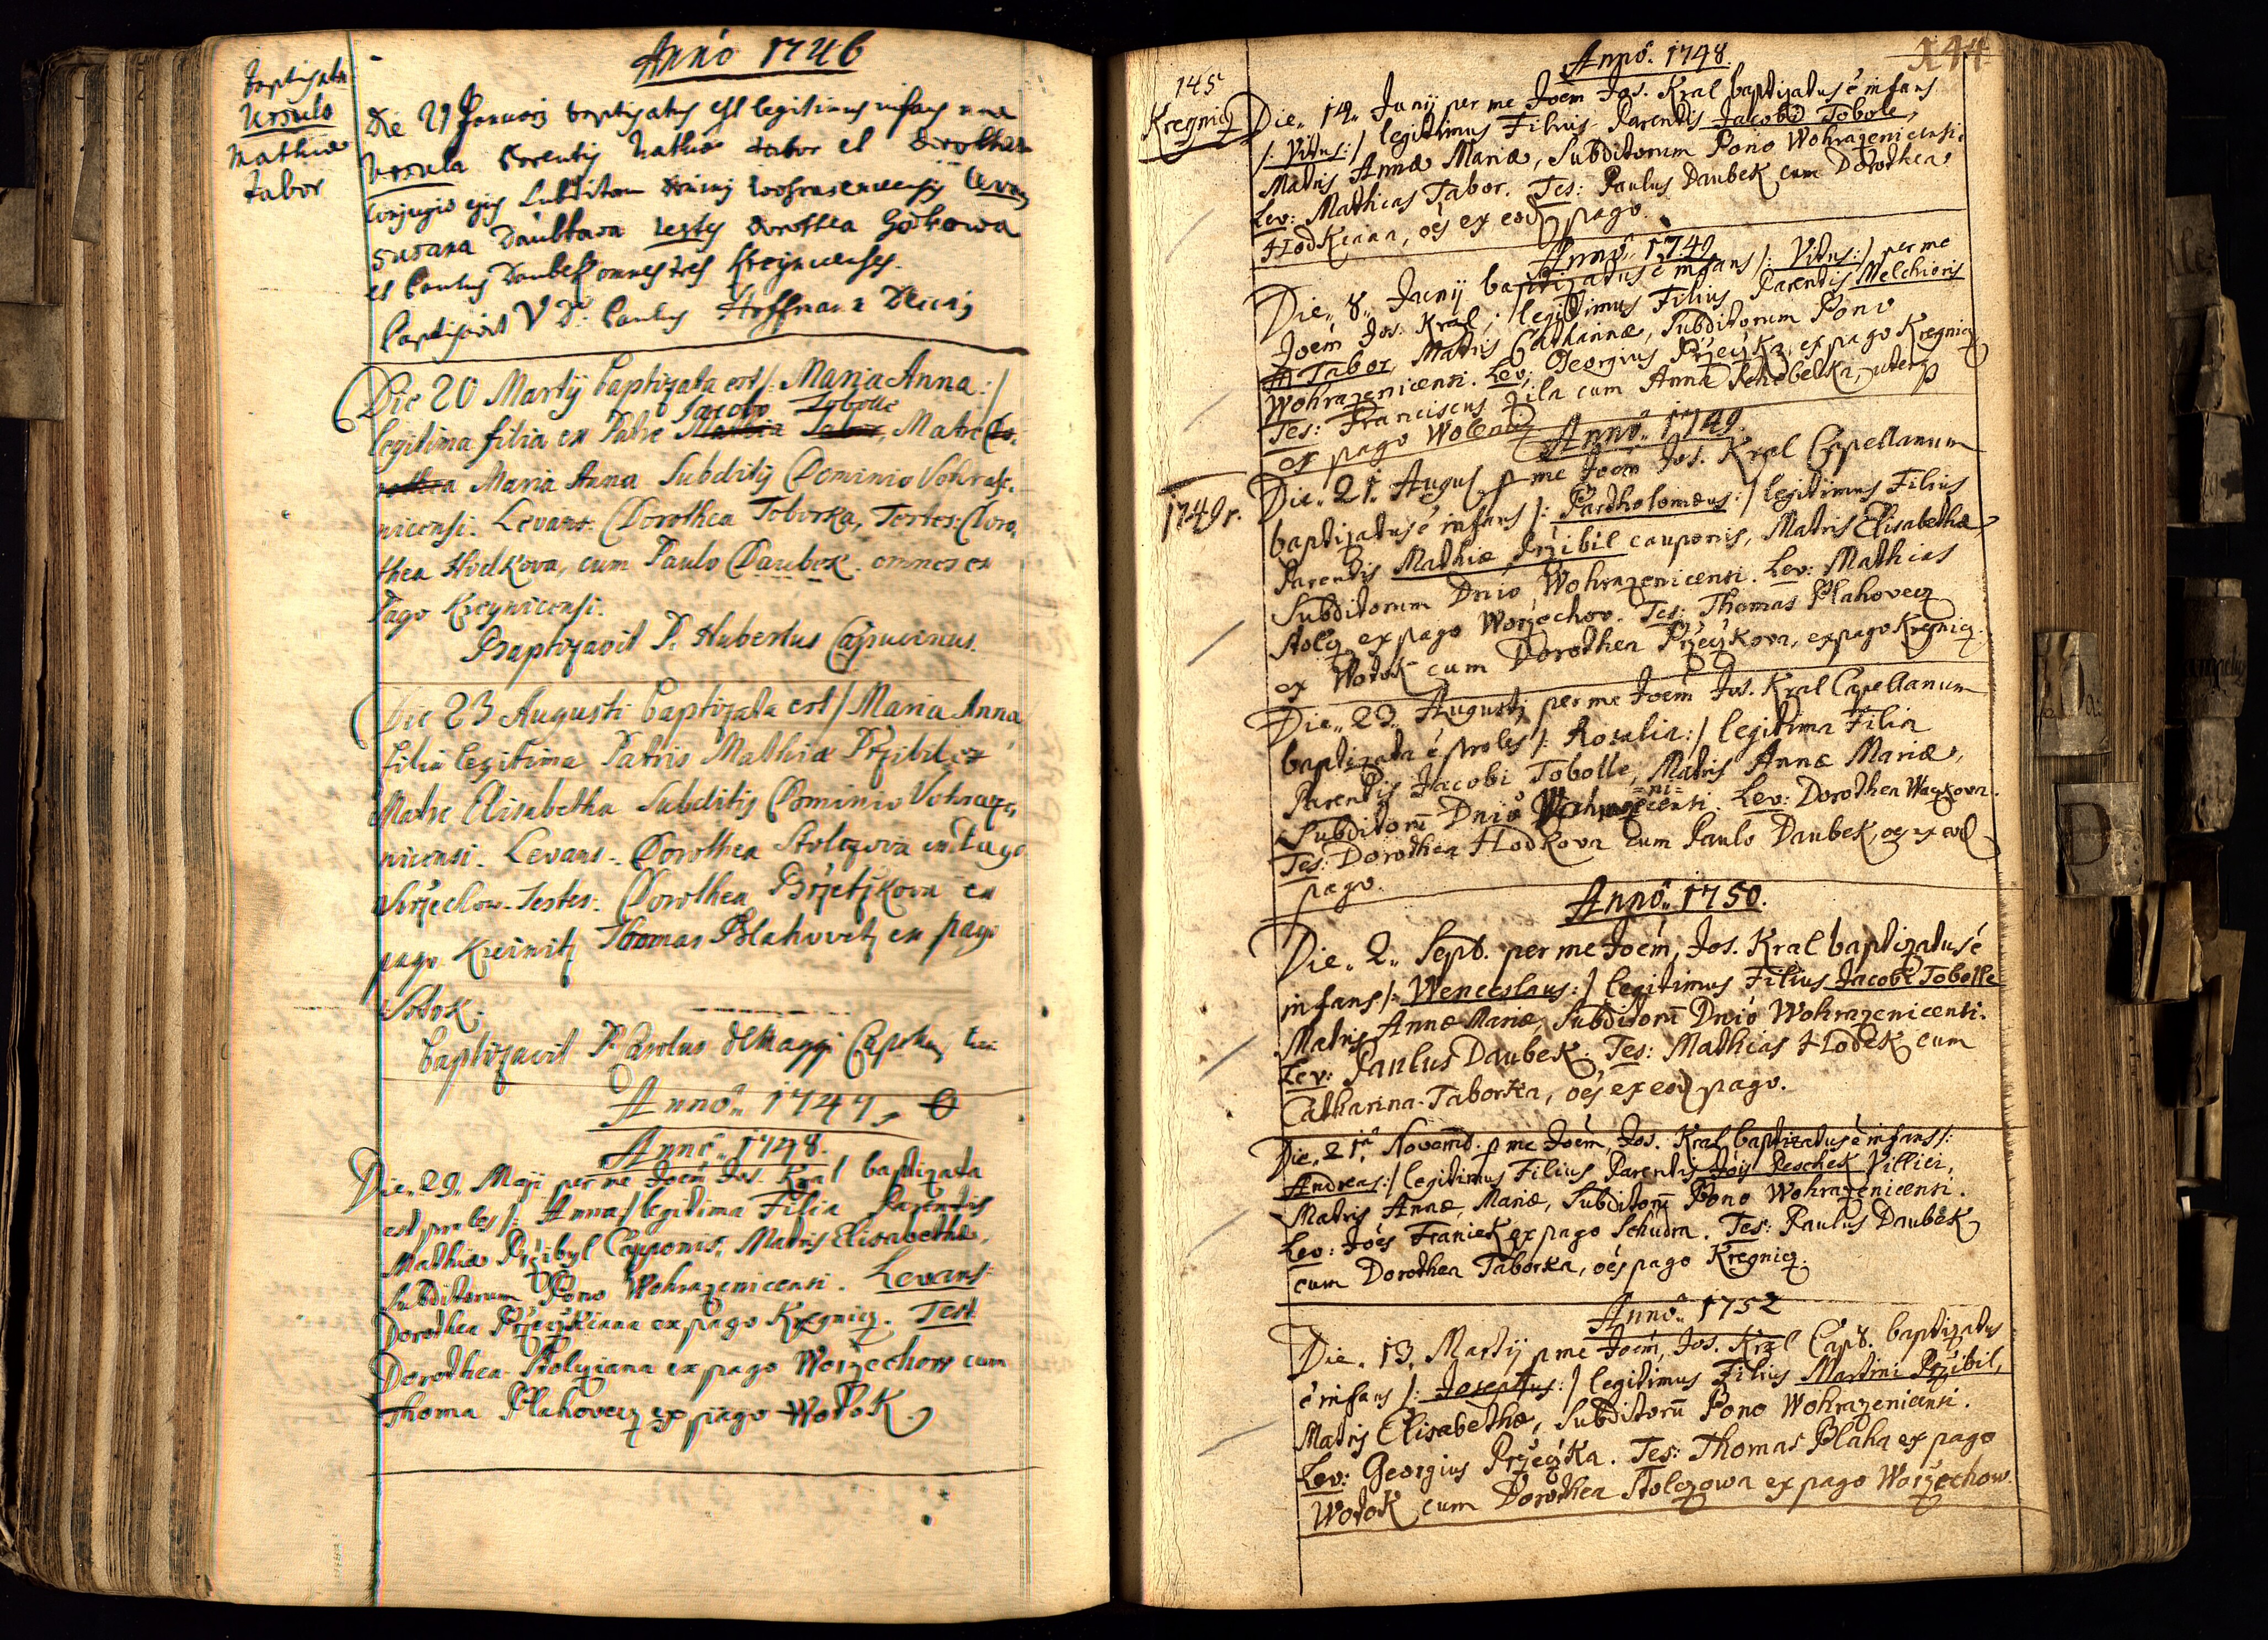 Anno 1746
baptisata
Ursula
Mathiæ
Tabor
Die 29 Januarij baptisatus est legitimus infans
Ursula Parentis Mathiæ Tabor et Dorothea
conjugis ejus subditorum Wohrasenicensis Levans
Susana Daubkova testes Dorothea Hotkowa
et Paulus Daubek omnes tres Kreynicenses.
Baptisavit V D: Paulus Hoffman
Die 20 Martij baptizata est /: Maria Anna :/
Jacobo Tobolle
legitima filia ex Patre Mathia Tabor, Matre Do-
rothea Maria Anna Subditij Dominio Vohraze-
nicensi. Levans: Dorothea Toborka, Testes: Doro-
thea Hodkova, cum Paulo Daubek. omnes ex
Pago Kreynicensi.
Baptizavit P. Hubertus Capucinus.
Die 23 Augusti baptizata est / Maria Anna
filia legitima Patris Mathiæ Przibil ex
Matre Elisabetha Subditis Dominio Vohraze-
nicensi. Levans. Dorothea Stolczova ex Pago
Worzechow. Testes: Dorothea Przetzkova ex
pago Kreinitz Thomas Blahovetz ex pago
Wotok.
baptizavit P. Carolus
Anno 1747, 0
Anno 1748.
Die 29 Maji per me Joem Jos. Kral baptizata
est proles /: Anna :/ legitima Filia Parentis
Mathiæ Przibyl Cauponis, Matris Elisabethæ,
Subditorum Dono Wohrazenicensi. Levans
Dorothea Przeczkiana ex pago Kregnicz. Test:
Dorothea Stolcziana ex pago Worzechow cum
Thoma Plahovecz ex pago Wotok.
144
Anno 1748.
145
Kregnicz
Die 14 Junij per me Joem Jos. Kral baptizatus e infans
/: Vitus :/ legitimus Filius Parentis Jacobi Tobole,
Matris Annæ Mariæ, Subditorum Dono Wohrazenicensi.
Lev: Mathias Tabor. Tes: Paulus Daubek cum Dorothea
Hodkiana, oes ex eod pago.
Anno 1749
Die 8 Junij baptizatus e infans /: Vitus :/ per me
Joem Jos. Kral, legitimus Filius Parentis Melchioris
Tabor, Matris Catharinæ, Subditorum Dono
Wohrazenicensi. Lev: Georgius Przeczka, ex pago Kregnicz
Tes: Franciscus Zila cum Anna Rehebelka, uterq
ex pago Wolenicz
Anno 1749.
1749r.
Die 21 Augus. p me Joem Jos. Kral Capellanum
baptizatus e infans /: Bartholomæus :/ legitimus Filius
Parentis Mathiæ Przibil cauponis, Matris Elisabethæ,
Subditorum Dnio Wohrazenicensi. Lev: Mathias
Stolcz, ex pago Worzechow. Tes: Thomas Plahovecz
ex Wotok cum Dorothea Przeczkova, ex pago Kregnicz.
Die 23 Augusti per me Joem Jos. Kral Capellanum
baptizata e proles /: Rosalia :/ legitima Filia
Parentis Jacobi Tobolle, Matris Annæ Mariæ,
=ni=
Subditorū Dnio Wohrazecensi. Lev: Dorothea Waczkova.
Tes: Dorothea Hodkova cum Paulo Daubek, oes ex eod
pago.
Anno 1750.
Die 2 Sept. per me Joem Jos. Kral baptizatus e
infans /: Wenceslaus :/ legitimus Filius Jacobi Tobolle
Matris Annæ Mariæ, Subditorū Dnio Wohrazenicensi.
Lev: Paulus Daubek. Tes: Mathias Hodek cum
Catharina Taborka, oes ex eod pago.
Die 21 Novemb. p me Joem Jos. Kral baptizatus e infans /:
Andreas :/ legitimus Filius Parentis Jois Peschek Villici,
Matris Annæ Mariæ, Subditorū Dono Wohrazenicensi.
Lev: Joes Franiek ex pago Schudra. Tes: Paulus Daubek
cum Dorothea Taborka, oes pago Kregnicz.
Anno 1752
Die 13 Martij p me Joem Jos. Kral Cap. baptizatus
e infans /: Josephus :/ legitimus Filius Martini Przibil,
Matris Elisabethæ, Subditorū Dono Wohrazenicensi.
Lev: Georgius Przeczka. Tes: Thomas Plaha ex pago
Wotok cum Dorothea Stolczowa ex pago Worzechow.